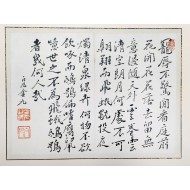 寵辱不驚閒看庭前
花開花落去留無
意漫隨天外雲卷雲舒
清空朗月何處不可
翱翔而飛蛾獨投夜
燭清泉綠卉何物不欲
飲啄而鴟鴞偏嗜腐鼠
噫世之不為飛蛾鴟鴞
者幾何人哉